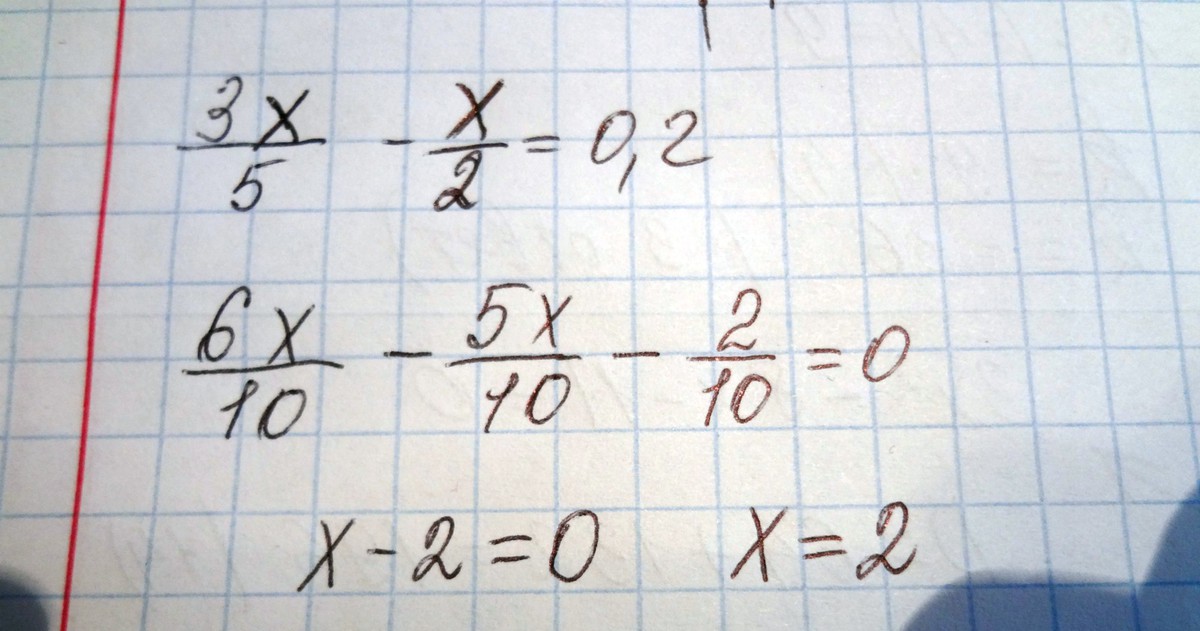 3x/5 - x/2 = 0,2
6x/10 - 5x/10 - 2/10 = 0
x - 2 = 0 x = 2